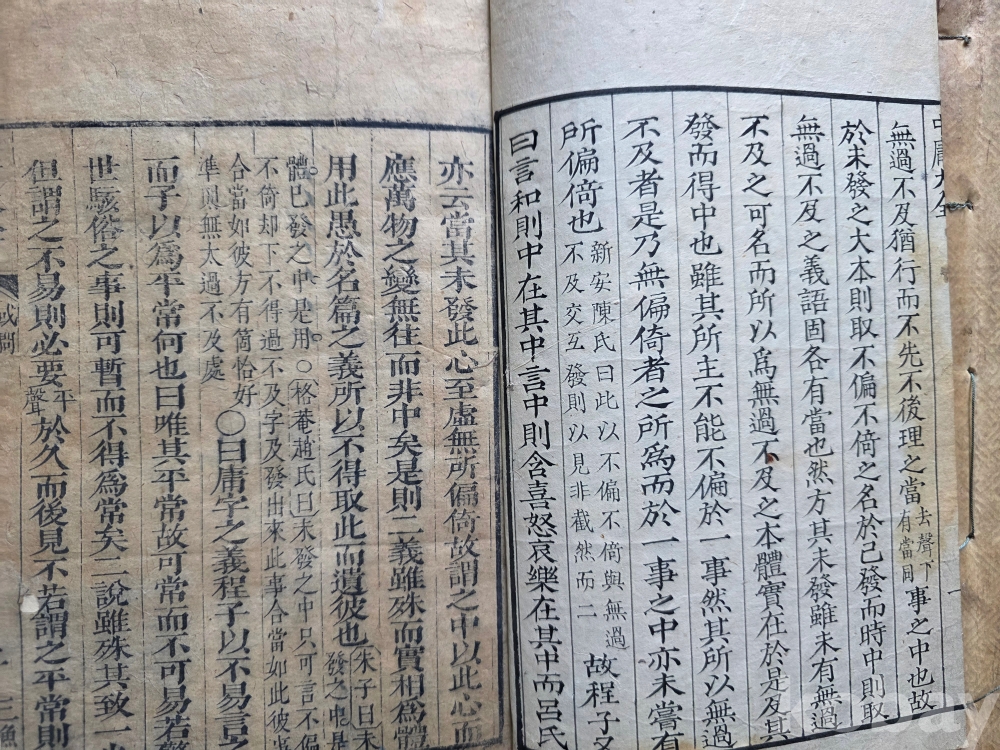 中庸大全
無過不及猶行而不先不後理之當去聲下有當同事之中也故
於未發之大本則取不偏不倚之名於已發而時中則取
無過不及之義語固各有當也然方其未發雖未有無過
不及之可名而所以爲無過不及之本體實在於是及其
發而得中也雖其所主不能不偏於一事然其所以無過
不及者是乃無偏倚者之所爲而於一事之中亦未嘗有
所偏倚也新安陳氏曰此以不偏不倚與無過不及交互發則以見非截然而二故程子又
曰言和則中在其中言中則含喜怒哀樂在其中而呂氏
亦云當其未發此心至虛無所偏倚故謂之中以此心而
應萬物之變無往而非中矣是則二義雖殊而實相爲體
用此愚於名篇之義所以不得取此而遺彼也朱子曰發之中是
體已發之中是用○格菴趙氏曰未發之中只可言不偏
不倚却下不得過不及字及發出來此事合當如此彼
合當如彼方有箇恰好
準與無太過不及處○曰庸字之義程子以不易言之
而子以爲平常何也曰唯其平常故可常而不可易若驚
世駭俗之事則可暫而不得爲常矣二說雖殊其致一
但謂之不易則必要平聲於久而後見不若謂之平常則
或問